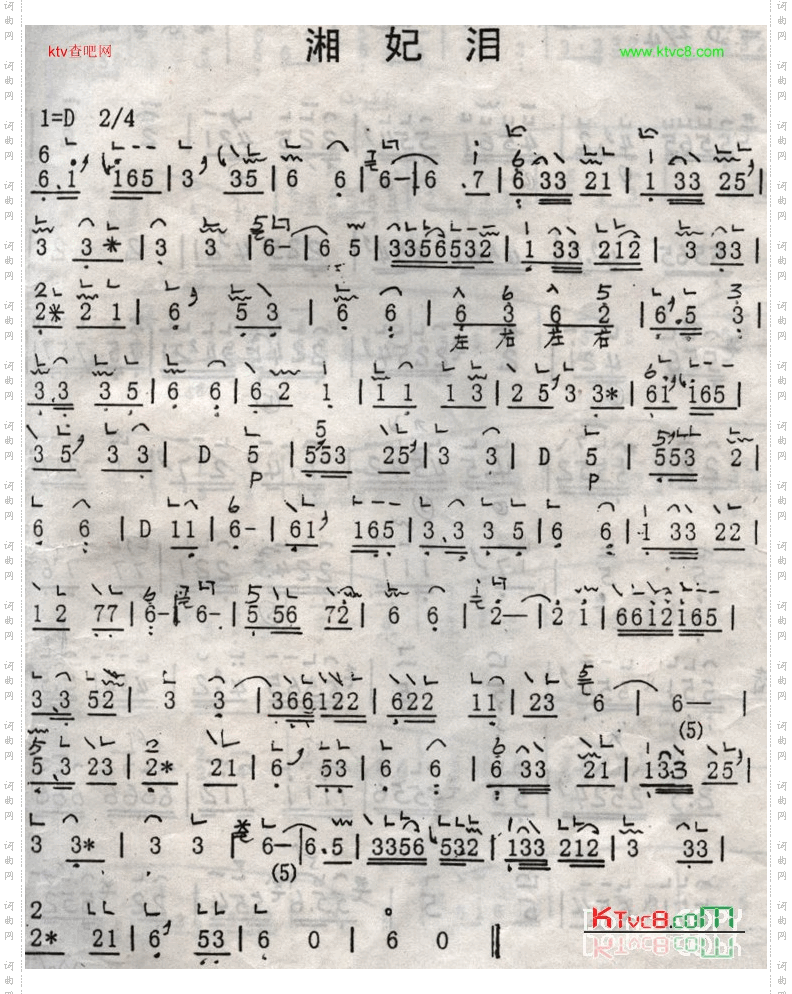 湘 妃 泪
ktv查吧网
www.ktvc8.com
1=D 2/4
6.1 165 | 3 35 | 6 6 | 6- | 6 .7 | 6 33 21 | 1 33 25 |
3 3* | 3 3 | 6- | 6 5 | 3356532 | 1 33 212 | 3 33 |
2* 2 1 | 6 5 3 | 6 6 | 6 3 6 2 | 6.5 3 |
左 右 左 右
3.3 35 | 6 6 | 62 1 | 11 13 | 25 3 3* | 61 165 |
35 33 | D 5 | 553 25 | 3 3 | D 5 | 553 2 |
P P
6 6 | D 11 | 6- | 61 165 | 3.3 35 | 6 6 | 1 33 22 |
12 77 | 6- | 6- | 5 56 72 | 6 6 | 2— | 2 1 | 6612165 |
3.3 52 | 3 3 | 366122 | 622 11 | 23 6 | 6— |
(5)
5.3 23 | 2* 21 | 6 53 | 6 6 | 6 33 21 | 133 25 |
3 3* | 3 3 | 6— | 6.5 | 3356 532 | 133 212 | 3 33 |
(5)
2* 21 | 6 53 | 6 0 | 6 0 ‖
KTvc8.com